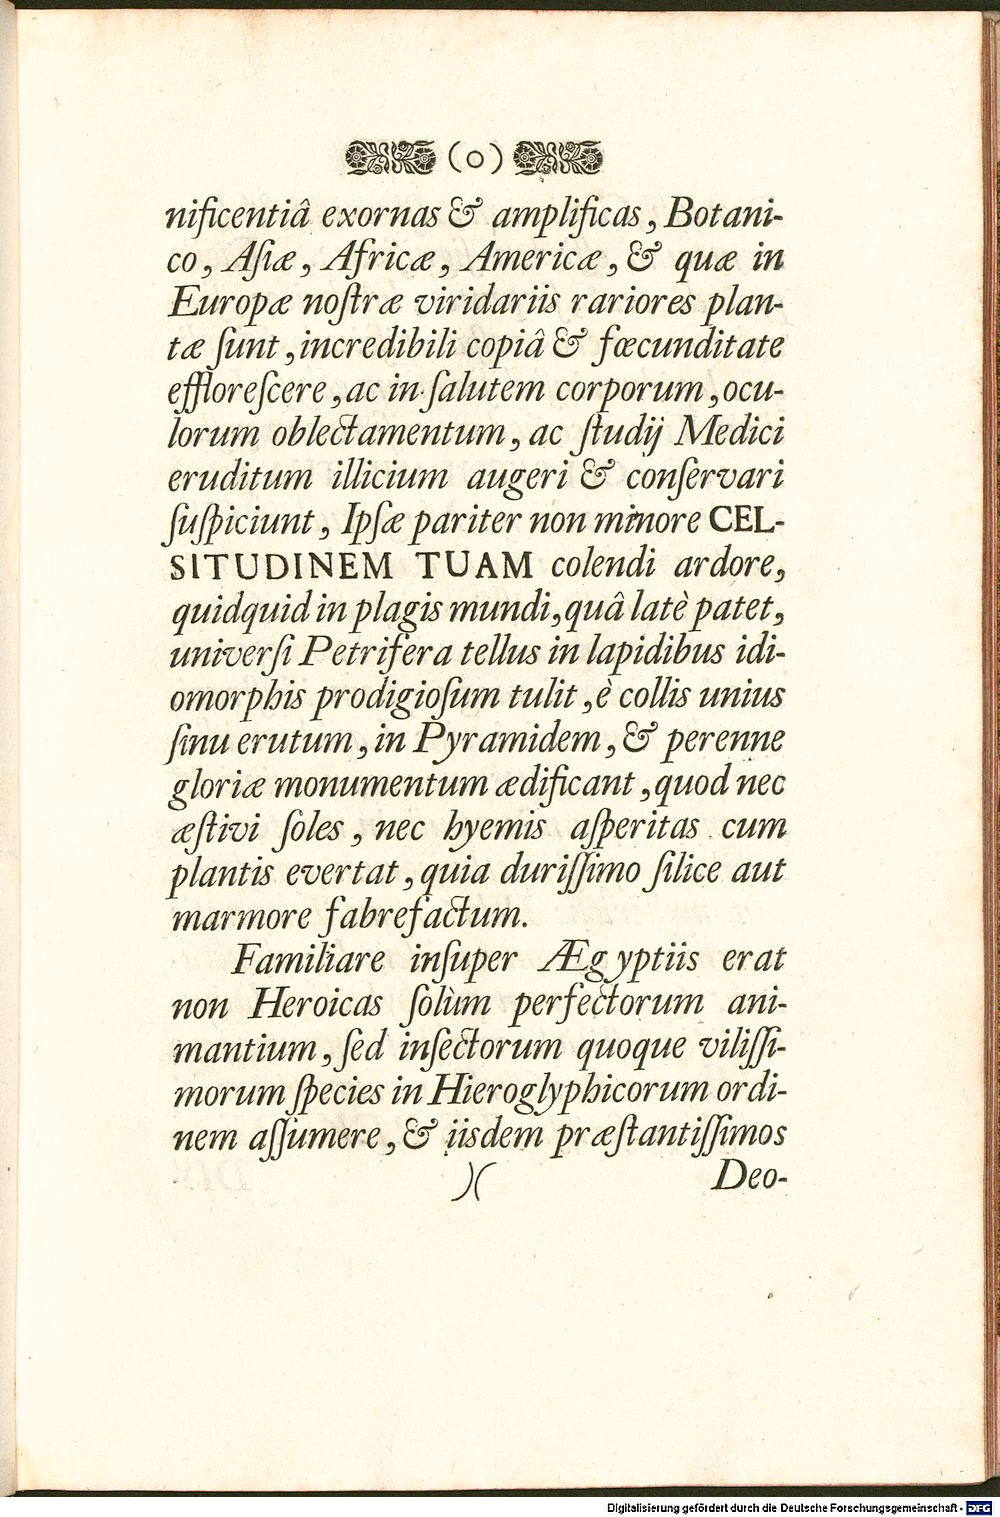 (o)
nificentiâ exornas & amplificas, Botani-
co, Aſiæ, Africæ, Americæ, & quæ in
Europæ noſtræ viridariis rariores plan-
tæ ſunt, incredibili copiâ & fœcunditate
effloreſcere, ac in ſalutem corporum, ocu-
lorum oblectamentum, ac ſtudij Medici
eruditum illicium augeri & conſervari
ſuſpiciunt, Ipſæ pariter non minore CEL-
SITUDINEM TUAM colendi ardore,
quidquid in plagis mundi, quâ latè patet,
univerſi Petrifera tellus in lapidibus idi-
omorphis prodigioſum tulit, è collis unius
ſinu erutum, in Pyramidem, & perenne
gloriæ monumentum ædificant, quod nec
æſtivi ſoles, nec hyemis aſperitas cum
plantis evertat, quia duriſſimo ſilice aut
marmore fabrefactum.
Familiare inſuper Ægyptiis erat
non Heroicas ſolùm perfectorum ani-
mantium, ſed inſectorum quoque viliſſi-
morum ſpecies in Hieroglyphicorum ordi-
nem aſſumere, & iisdem præſtantiſſimos
)( Deo-
Digitalisierung gefördert durch die Deutsche Forschungsgemeinschaft - DFG